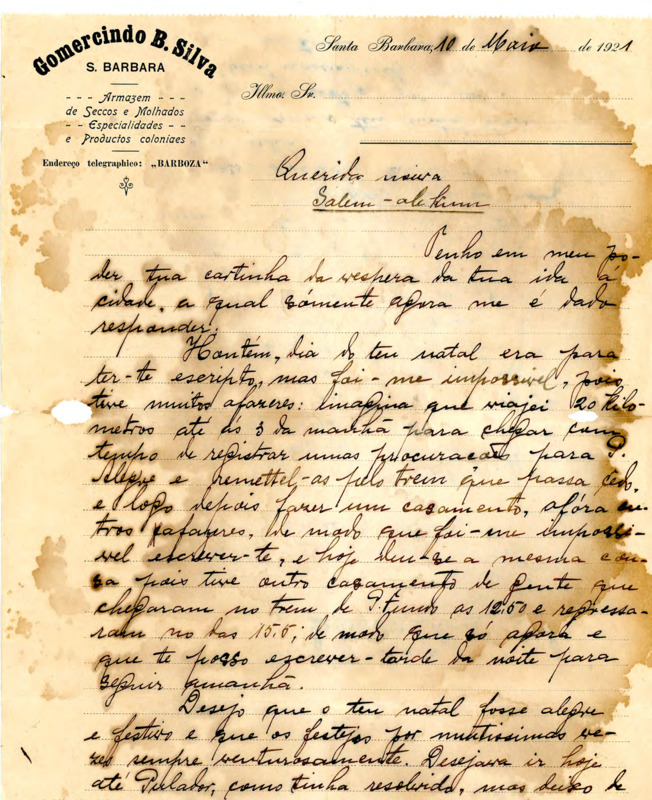 Gomercindo B. Silva
S. BARBARA
Armazem
de Seccos e Molhados
Especialidades
e Productos coloniaes
Endereço telegraphico: „BARBOZA“
Santa Barbara, 10 de Maio de 1921
Illmo. Sr.
Querida noiva
Salem-alekum
Tenho em meu po-
der tua cartinha da vespera da tua ida á
cidade, a qual sómente agora me é dado
responder.
Hontem, dia do teu natal era para
ter-te escripto, mas foi-me impossivel, pois
tive muitos afazeres: imagina que viajei 20 kilo-
metros até as 3 da manhã para chegar com
tempo de registrar umas procurações para P.
Alegre e remettel-as pelo trem que passa cedo,
e logo depois fazer um casamento, afóra ou-
tros afazeres, de modo que foi-me impossi-
vel escrever-te, e hoje deu-se a mesma cou-
sa pois tive outro casamento de gente que
chegaram no trem de P. Fundo as 12.50 e regressa-
ram no das 15.5; de modo que só agora e
que te posso escrever-tarde da noite para
seguir amanhã.
Desejo que o teu natal fosse alegre
e festivo e que os festejos por muitissimas ve-
zes sempre venturosamente. Desejava ir hoje
até Pulador, como tinha resolvido, mas deixo de